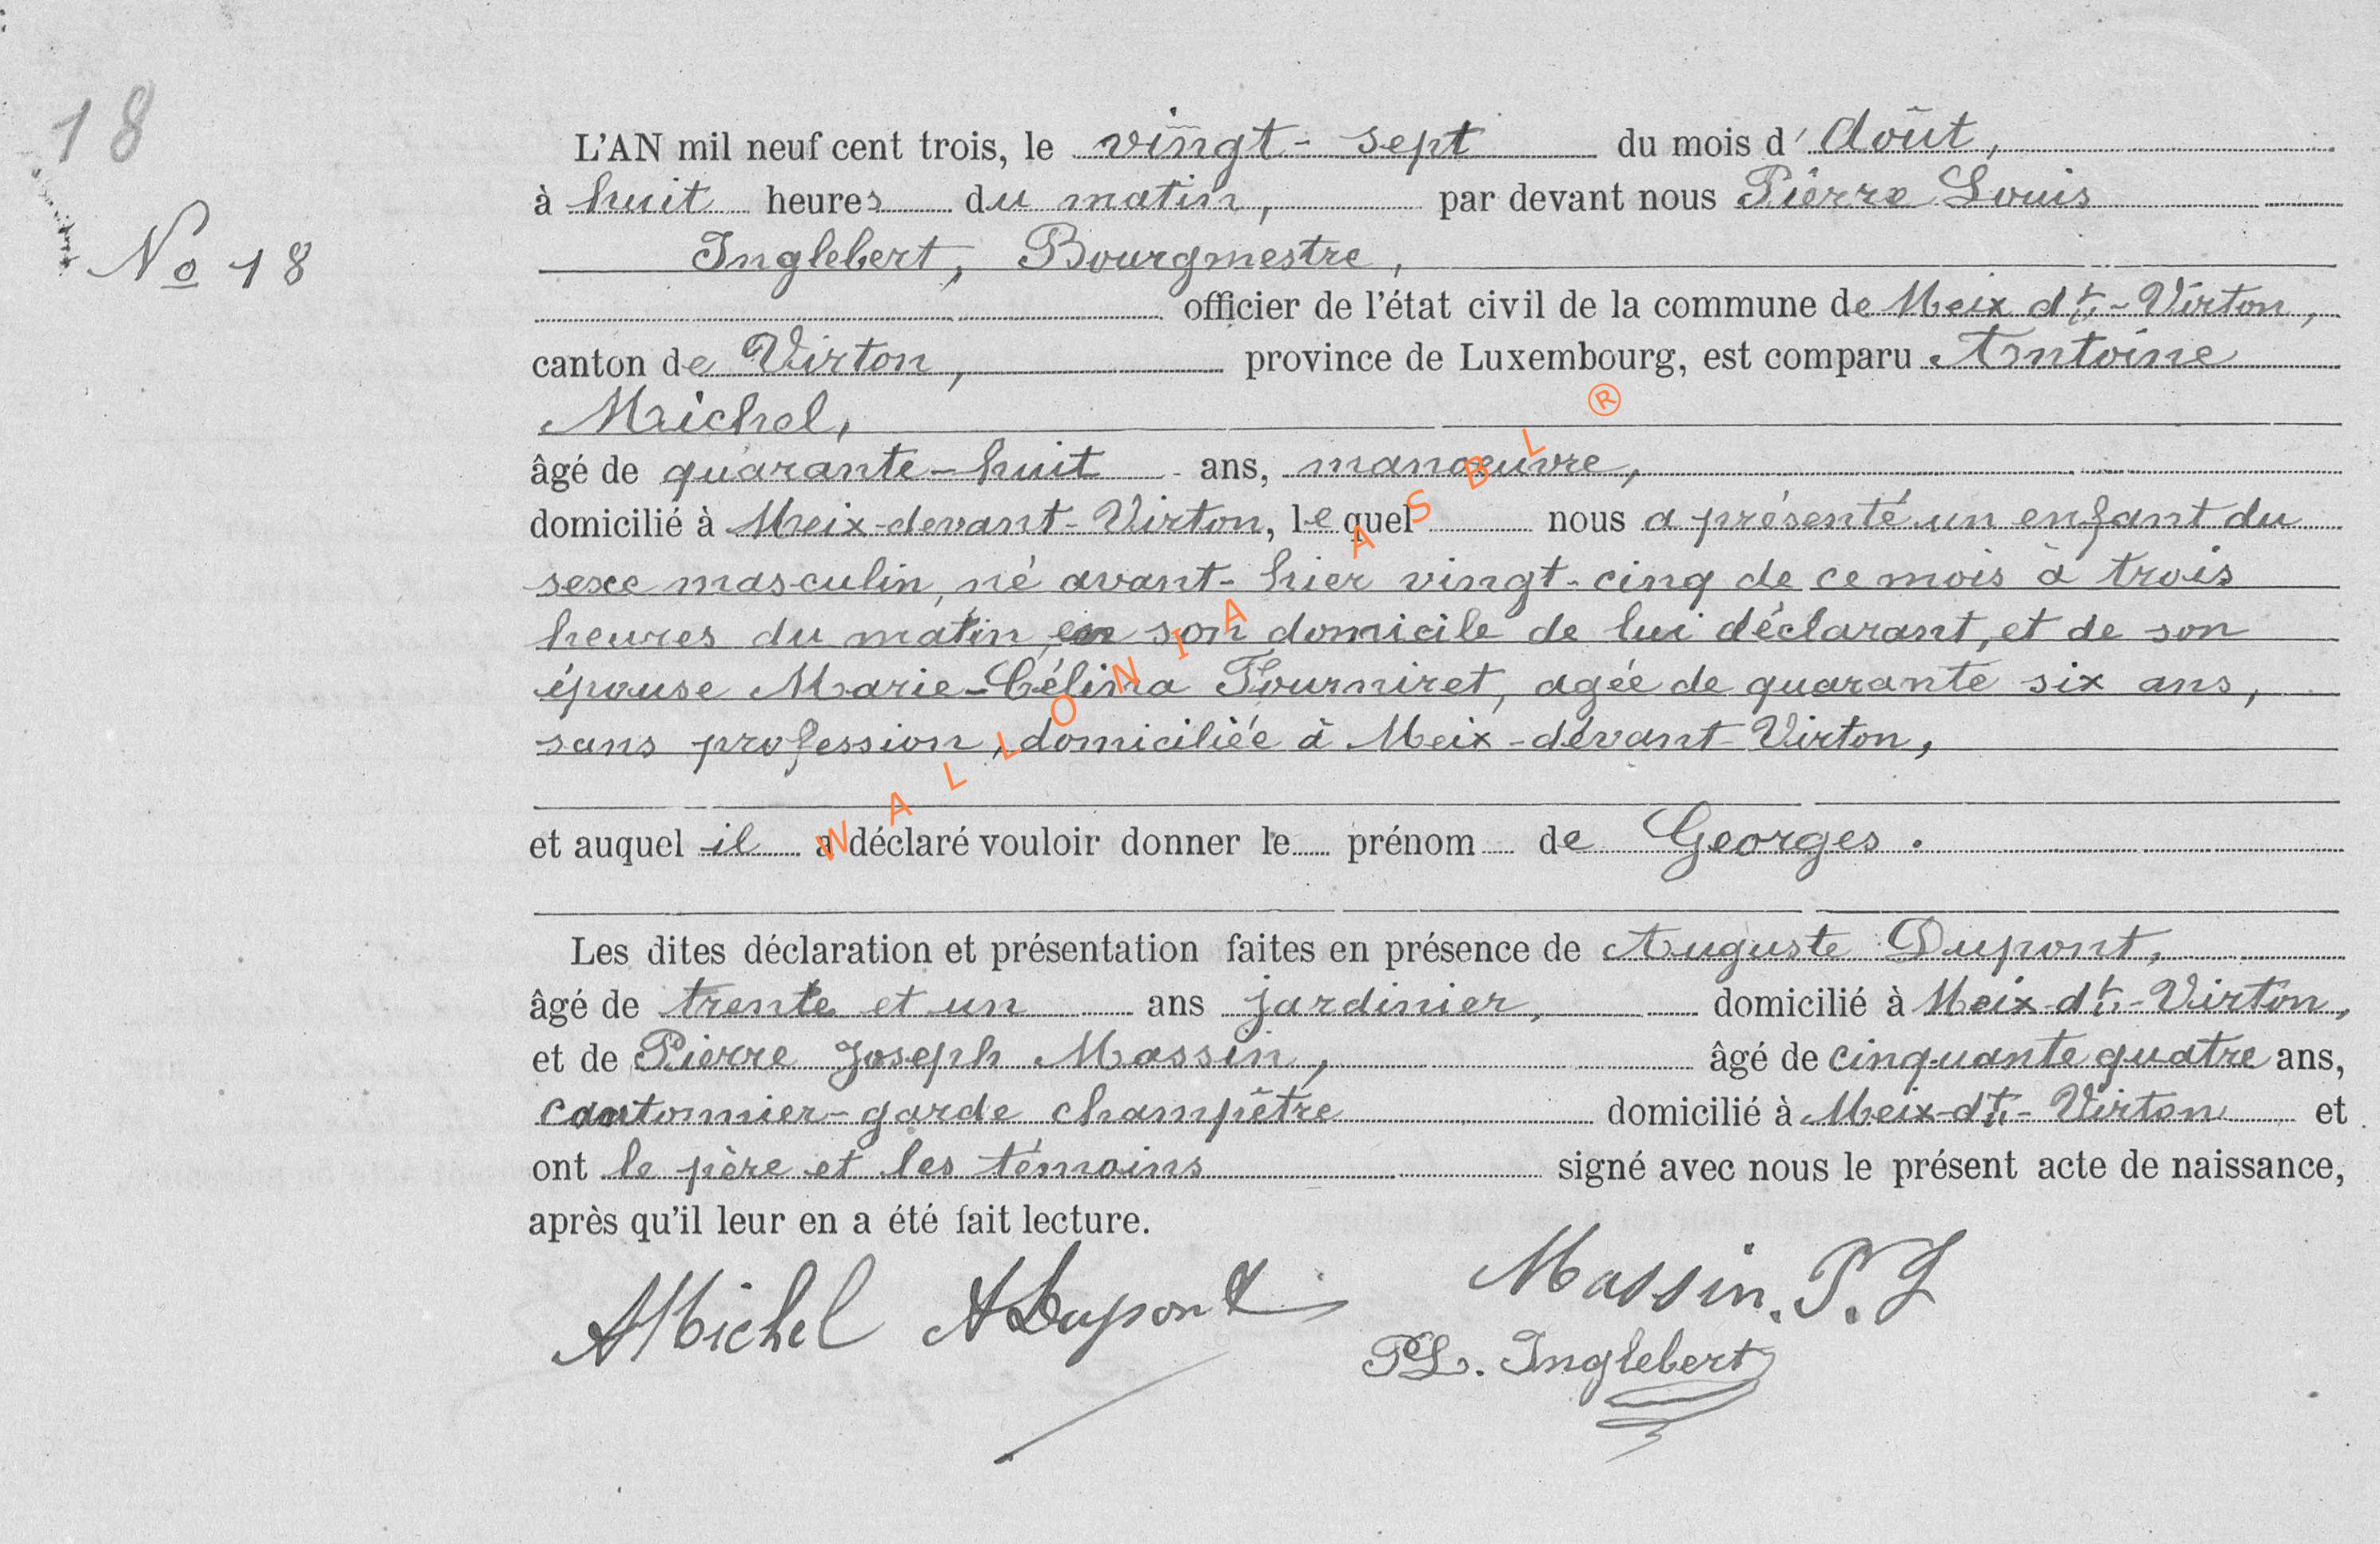 18
L'AN mil neuf cent trois, le vingt-sept du mois d'Août,
No 18
à huit heures du matin, par devant nous Pierre Louis
Inglebert, Bourgmestre,
officier de l'état civil de la commune de Meix dt-Virton,
canton de Virton, province de Luxembourg, est comparu Antoine
Michel,
âgé de quarante-huit ans, manœuvre,
domicilié à Meix-devant-Virton, lequel nous a présenté un enfant du
sexe masculin, né avant-hier vingt-cinq de ce mois à trois
heures du matin, en son domicile de lui déclarant, et de son
épouse Marie-Célina Fourniret, agée de quarante six ans,
sans profession, domiciliée à Meix-dévant-Virton,
et auquel il a déclaré vouloir donner le prénom de Georges.
Les dites déclaration et présentation faites en présence de Auguste Dupont,
âgé de trente et un ans jardinier, domicilié à Meix-dt-Virton,
et de Pierre Joseph Massin, âgé de cinquante quatre ans,
cantonnier-garde champêtre domicilié à Meix-dt-Virton et
ont le père et les témoins signé avec nous le présent acte de naissance,
après qu'il leur en a été fait lecture.
AMichel ADupont Massin. P. J
PL. Inglebert
WALLONIA ASBL ®